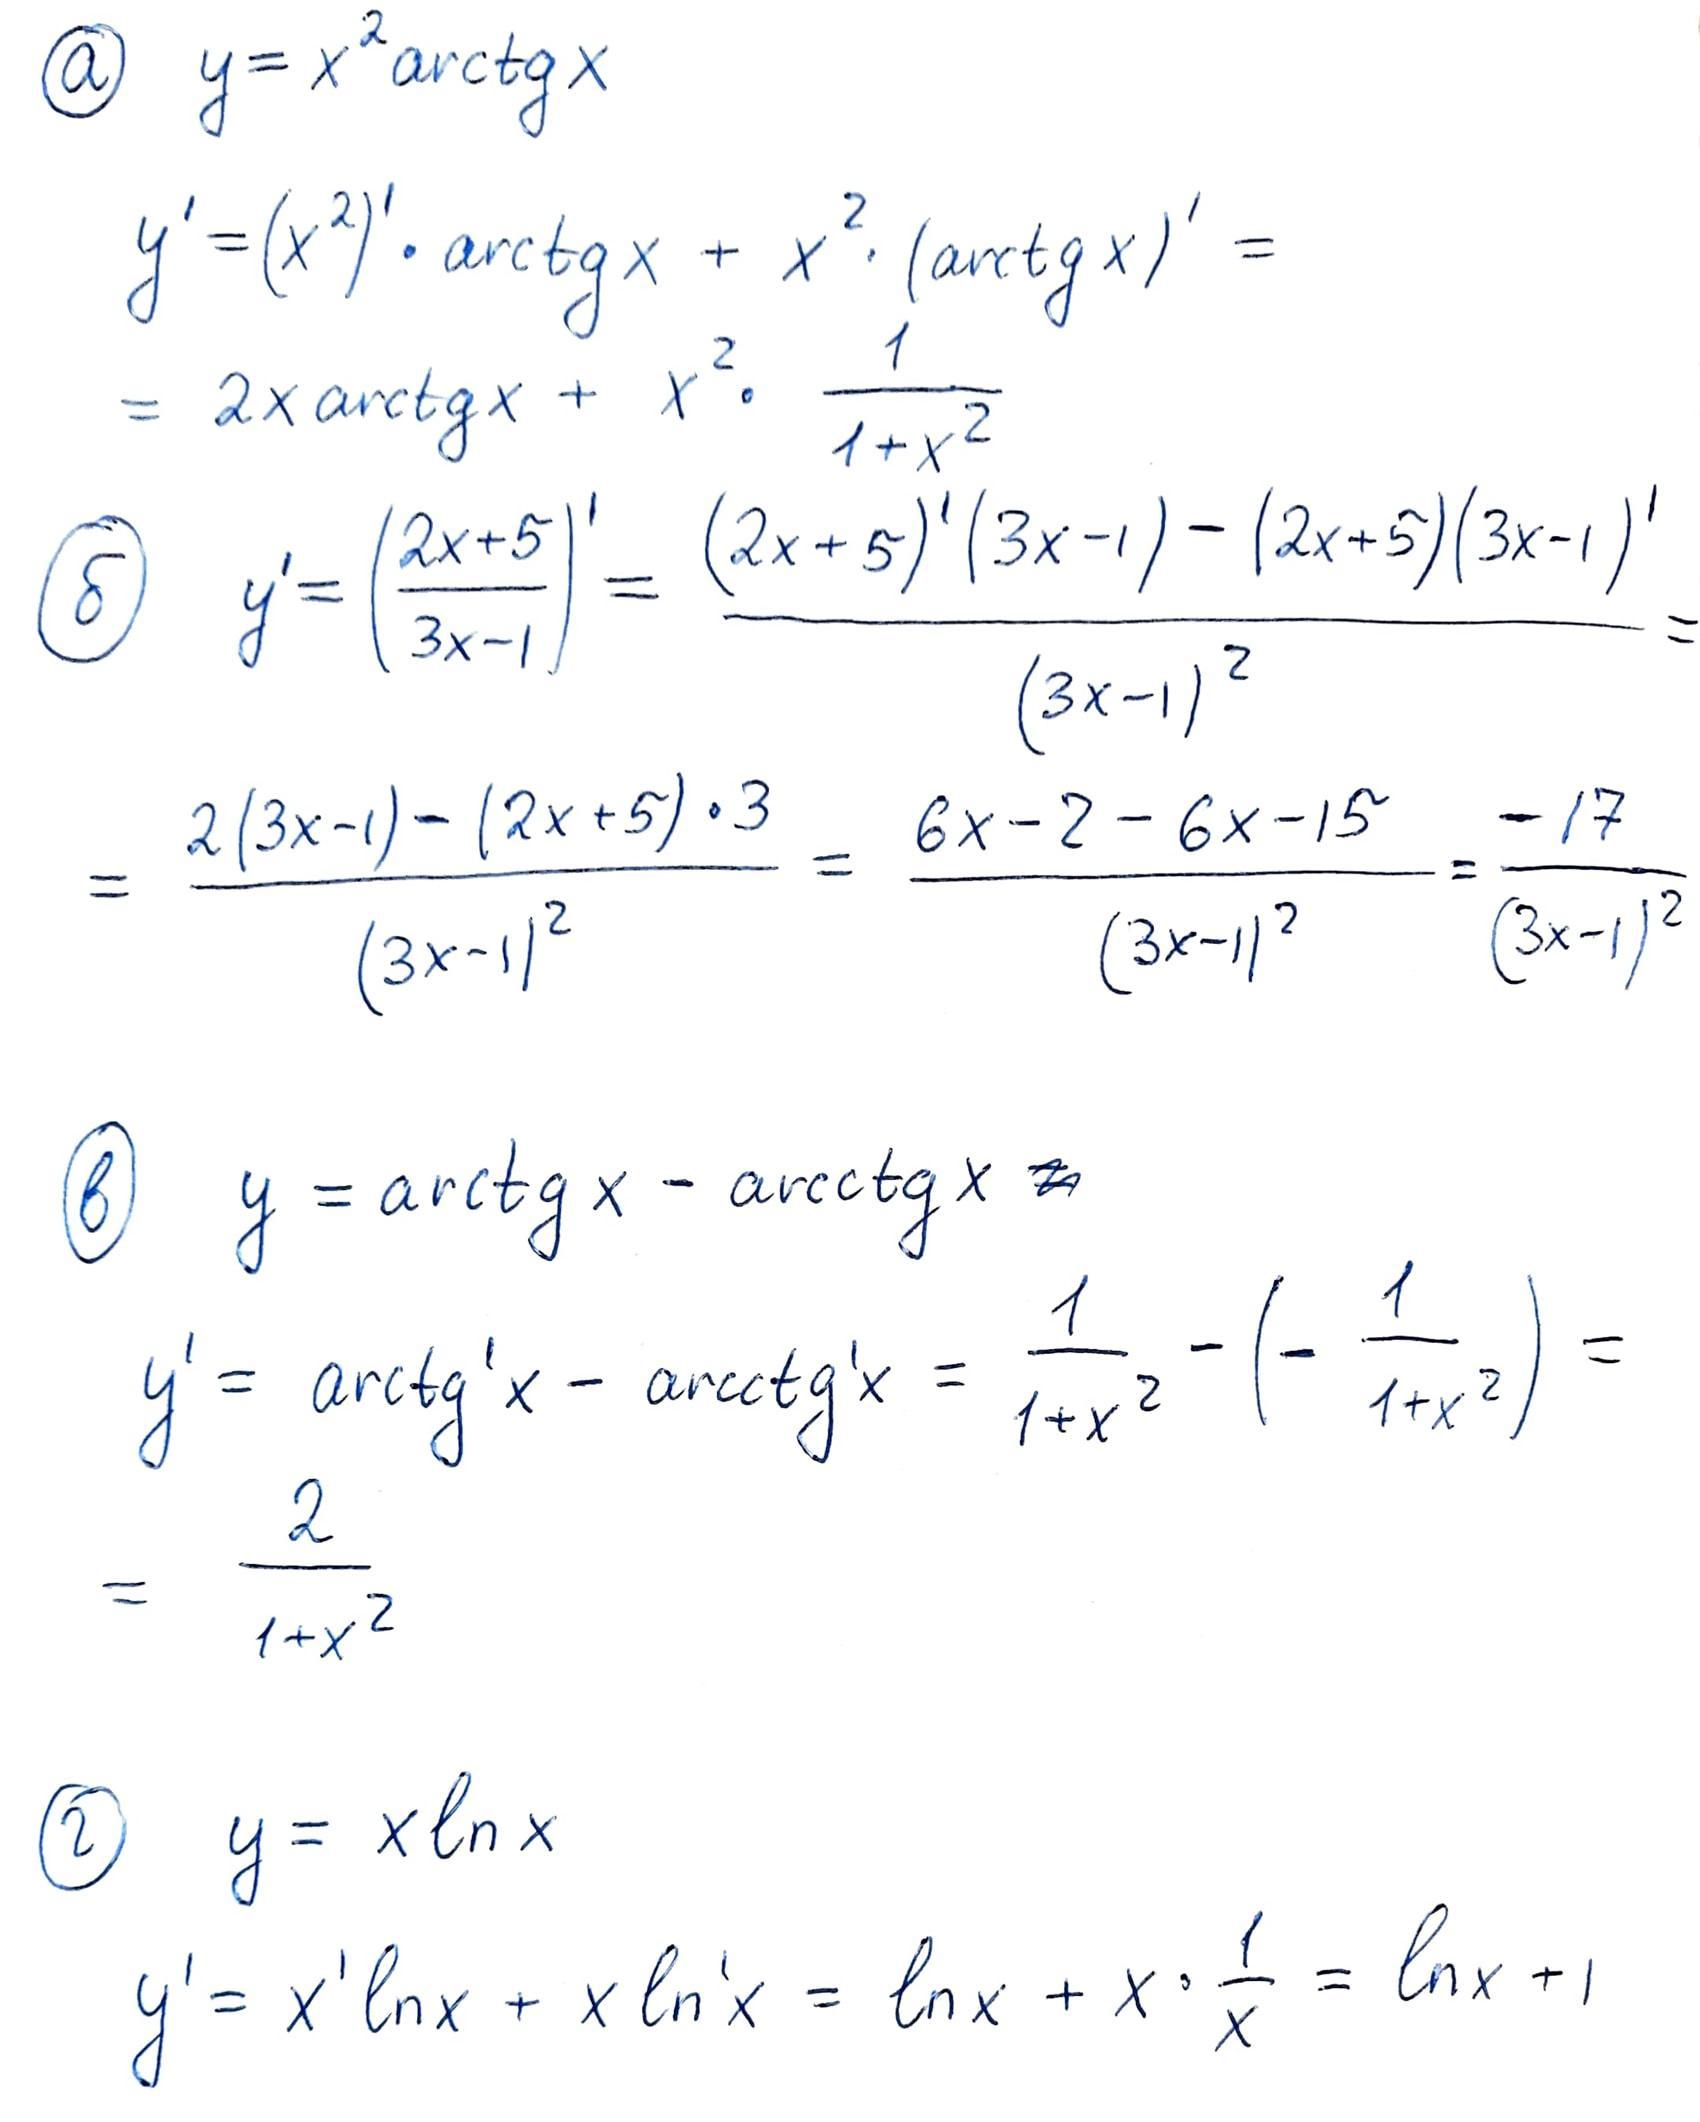 а) y = x² arctg x
y' = (x²)' · arctg x + x² · (arctg x)' =
= 2x arctg x + x² · 1/(1+x²)
б) y' = ((2x+5)/(3x-1))' = ((2x+5)'(3x-1) - (2x+5)(3x-1)')/(3x-1)² =
= (2(3x-1) - (2x+5)·3)/(3x-1)² = (6x-2-6x-15)/(3x-1)² = -17/(3x-1)²
в) y = arctg x - arcctg x
y' = arctg'x - arcctg'x = 1/(1+x²) - (-1/(1+x²)) =
= 2/(1+x²)
г) y = x ln x
y' = x' ln x + x ln'x = ln x + x · 1/x = ln x + 1